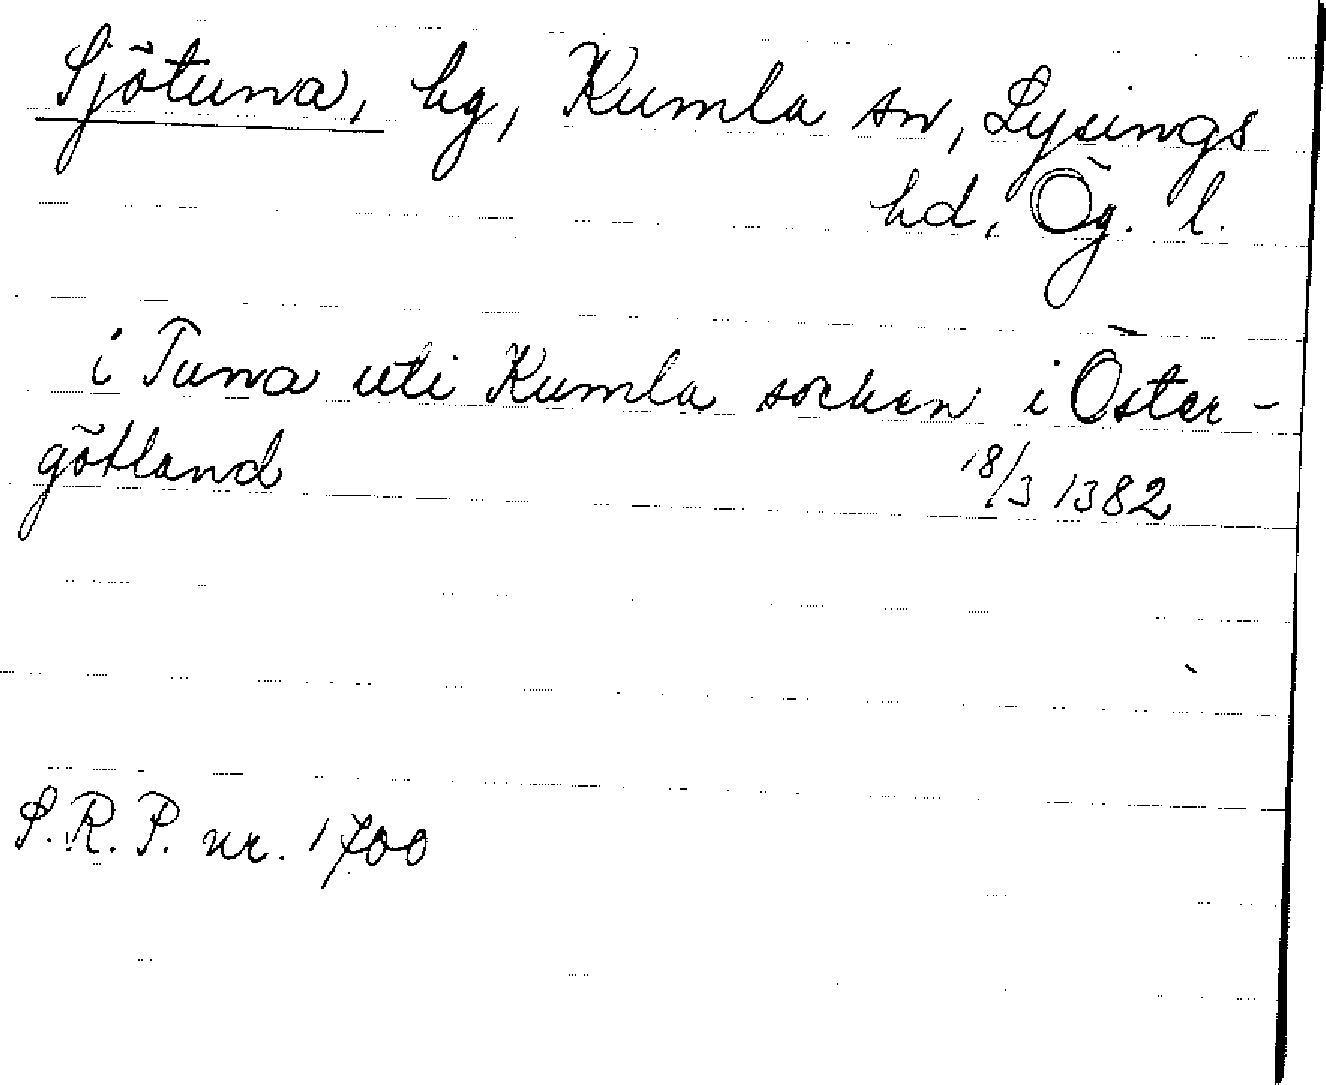 Sjötuna, hg, Kumla sn, Lysings
hd, Ög. l.
i Tuna uti Kumla socken i Öster-
götland 18/3 1382
S.R.P. nr. 1700